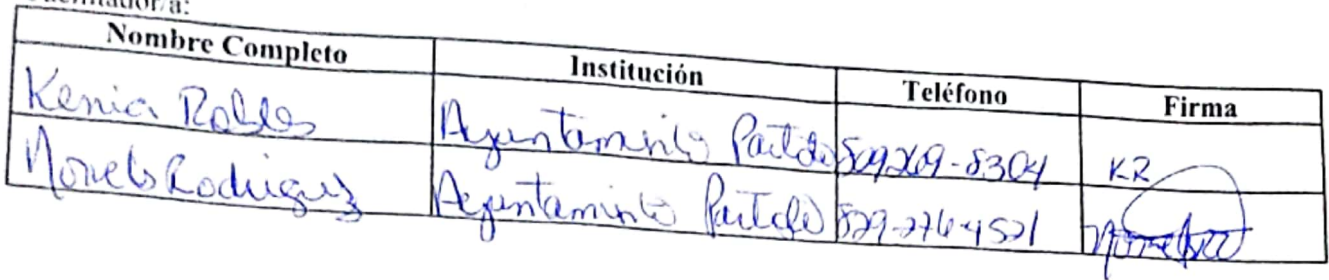 Nombre Completo Institución Teléfono Firma
Kenia Robles Ayuntamiento Partido 809269-8304 KR
Rodriguez Ayuntaminto Partido 829-276-4521